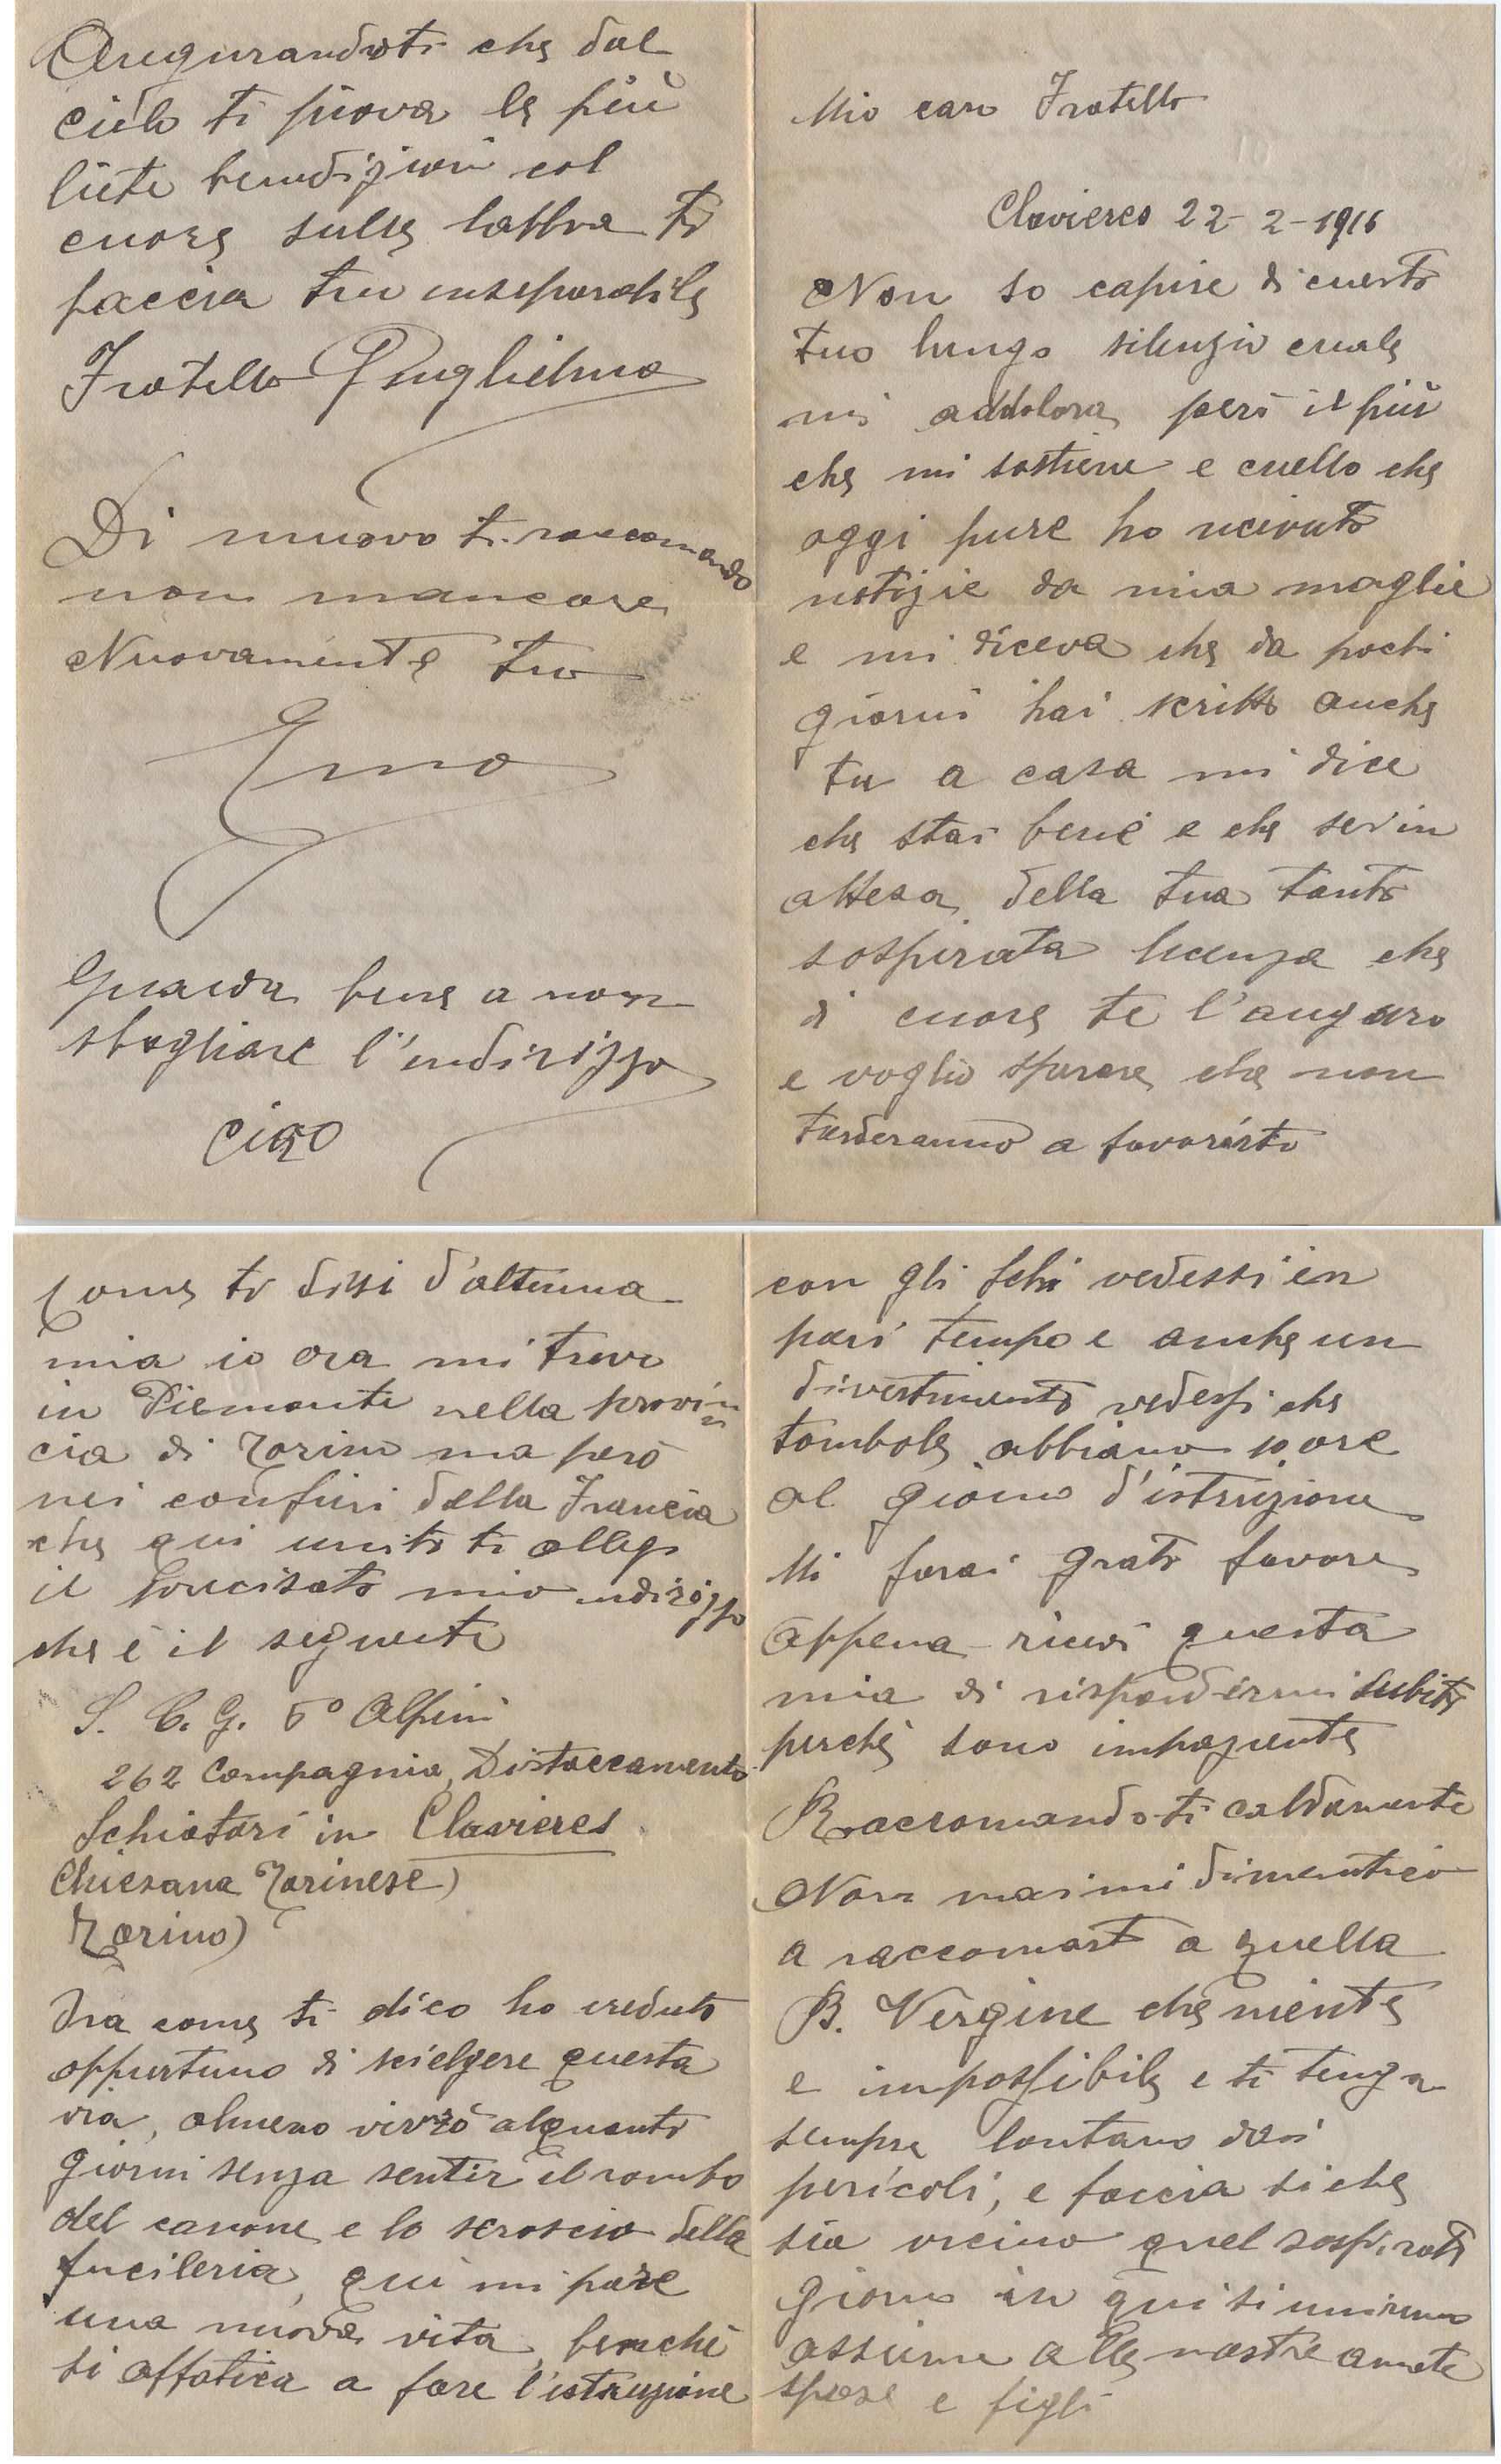 Mio caro Fratello
Clavieres 22-2-1916
Non so capire di cuesto
tuo lungo silenzio cuale
mi addolora però il più
che mi sostiene e cuello che
oggi pure ho ricevuto
notizie da mia moglie
e mi diceva che da pochi
giorni hai scritto anche
tu a casa mi dice
che stai bene e che sei in
attesa della tua tanto
sospirata licenza che
di cuore te l'auguro
e voglio sperare che non
tarderanno a favorirti
Come ti dissi d'altunna
mia io ora mi trovo
in Piemonte nella provin
cia di Torino ma però
nei confini della Francia
che qui unito ti allego
il precisato mio indirizzo
che è il seguente
S. C. G. 5° Alpini
262 Compagnia, Distaccamento
Schiatori in Clavieres
Chiesana Torinese)
Torino)
Ora come ti dico ho creduto
oppurtuno di scielgere questa
via, almeno vivrò alquanti
giorni senza sentir il rombo
del canone e lo scroscio della
fucileria, qui mi pare
una nuova vita, benchè
si affatica a fare l'istruzione
con gli schi vedessi in
pari tempo e anche un
divertimento vedessi che
tombole abbiamo 10 ore
al giorno d'istruzione
Mi farai grato favore
appena ricevi questa
mia di rispondermi subito
perchè sono impaziente
Raccomandoti caldamente
Non mai mi dimentico
a raccomart a quella
B. Vergine che niente
e impossibile e ti tenga
sempre lontano dai
pericoli, e faccia si che
sia vicino quel sospirato
giorno in qui si uniremo
assieme alle nostre amate
spose e figli
Augurandoti che dal
cielo ti piova le più
liete benedizioni col
cuore sulle labbra ti
faccia tuo inseparabile
Fratello Guglielmo
Di nuovo ti raccomando
non mancare
Nuovamente tuo
Emo
Guarda bene a non
sbagliare l'indirizzo
ciao